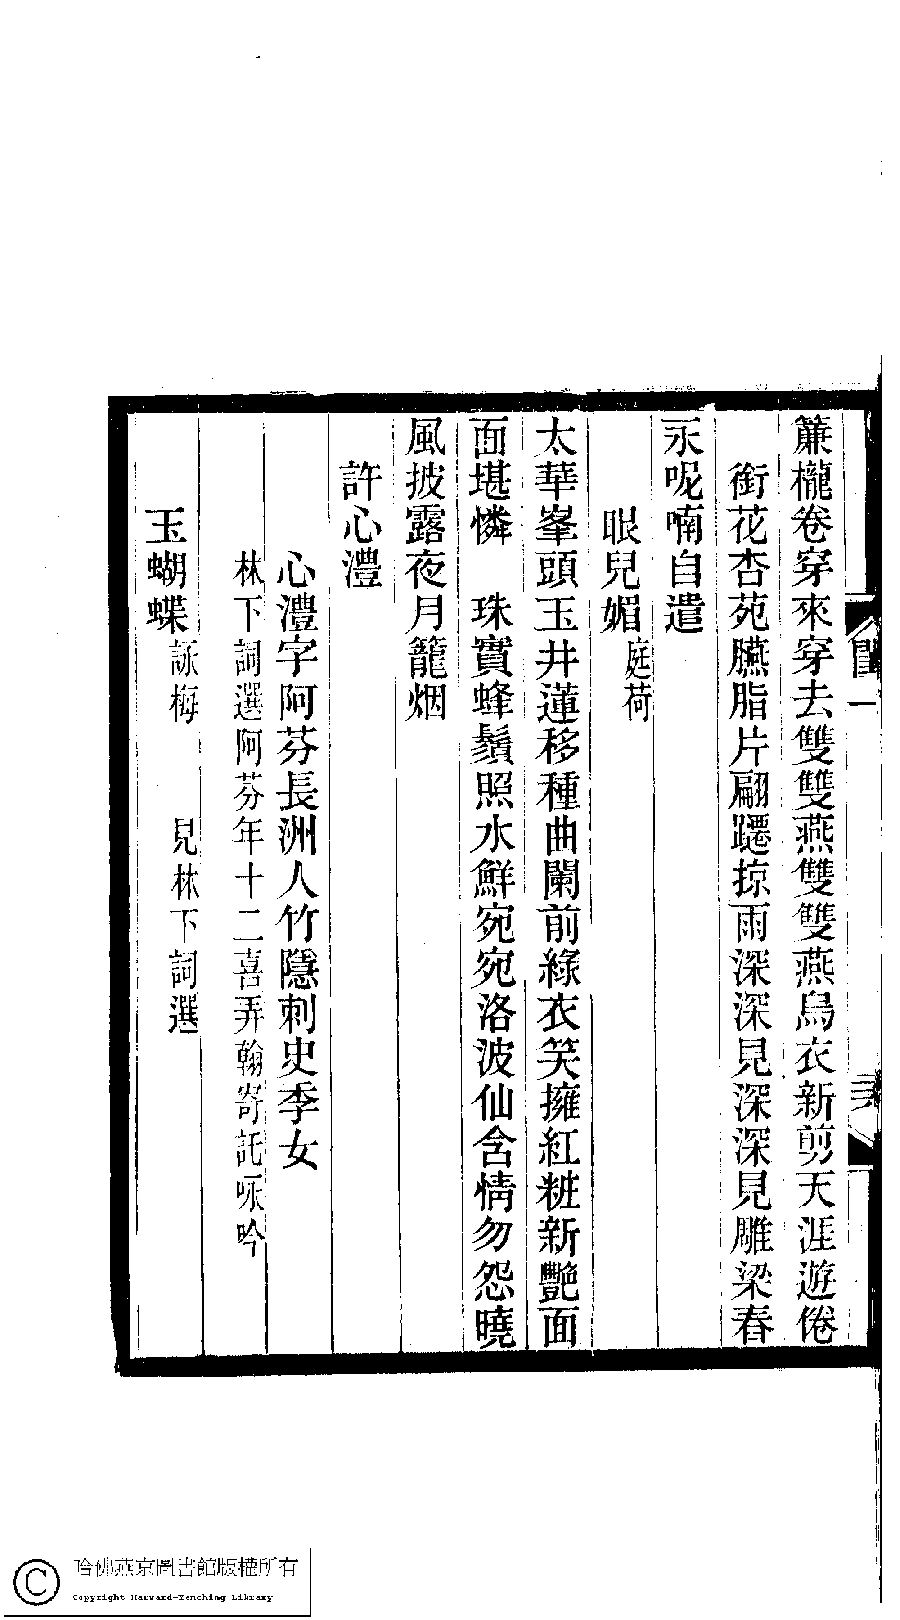 閨一
三
簾櫳卷穿來穿去雙雙燕雙雙燕烏衣新剪天涯遊倦
銜花杏苑臙脂片翩躚掠雨深深見深深見雕梁春
永呢喃自遣
眼兒媚庭荷
太華峯頭玉井蓮移種曲闌前綠衣笑擁紅粧新艷面
面堪憐　珠實蜂鬚照水鮮宛宛洛波仙含情勿怨曉
風披露夜月籠烟
許心澧
心澧字阿芬長洲人竹隱刺史季女
林下詞選阿芬年十二喜弄翰寄託咏吟
玉蝴蝶詠梅　見林下詞選
哈佛燕京圖書館版權所有
Copyright Harvard-Yenching Library